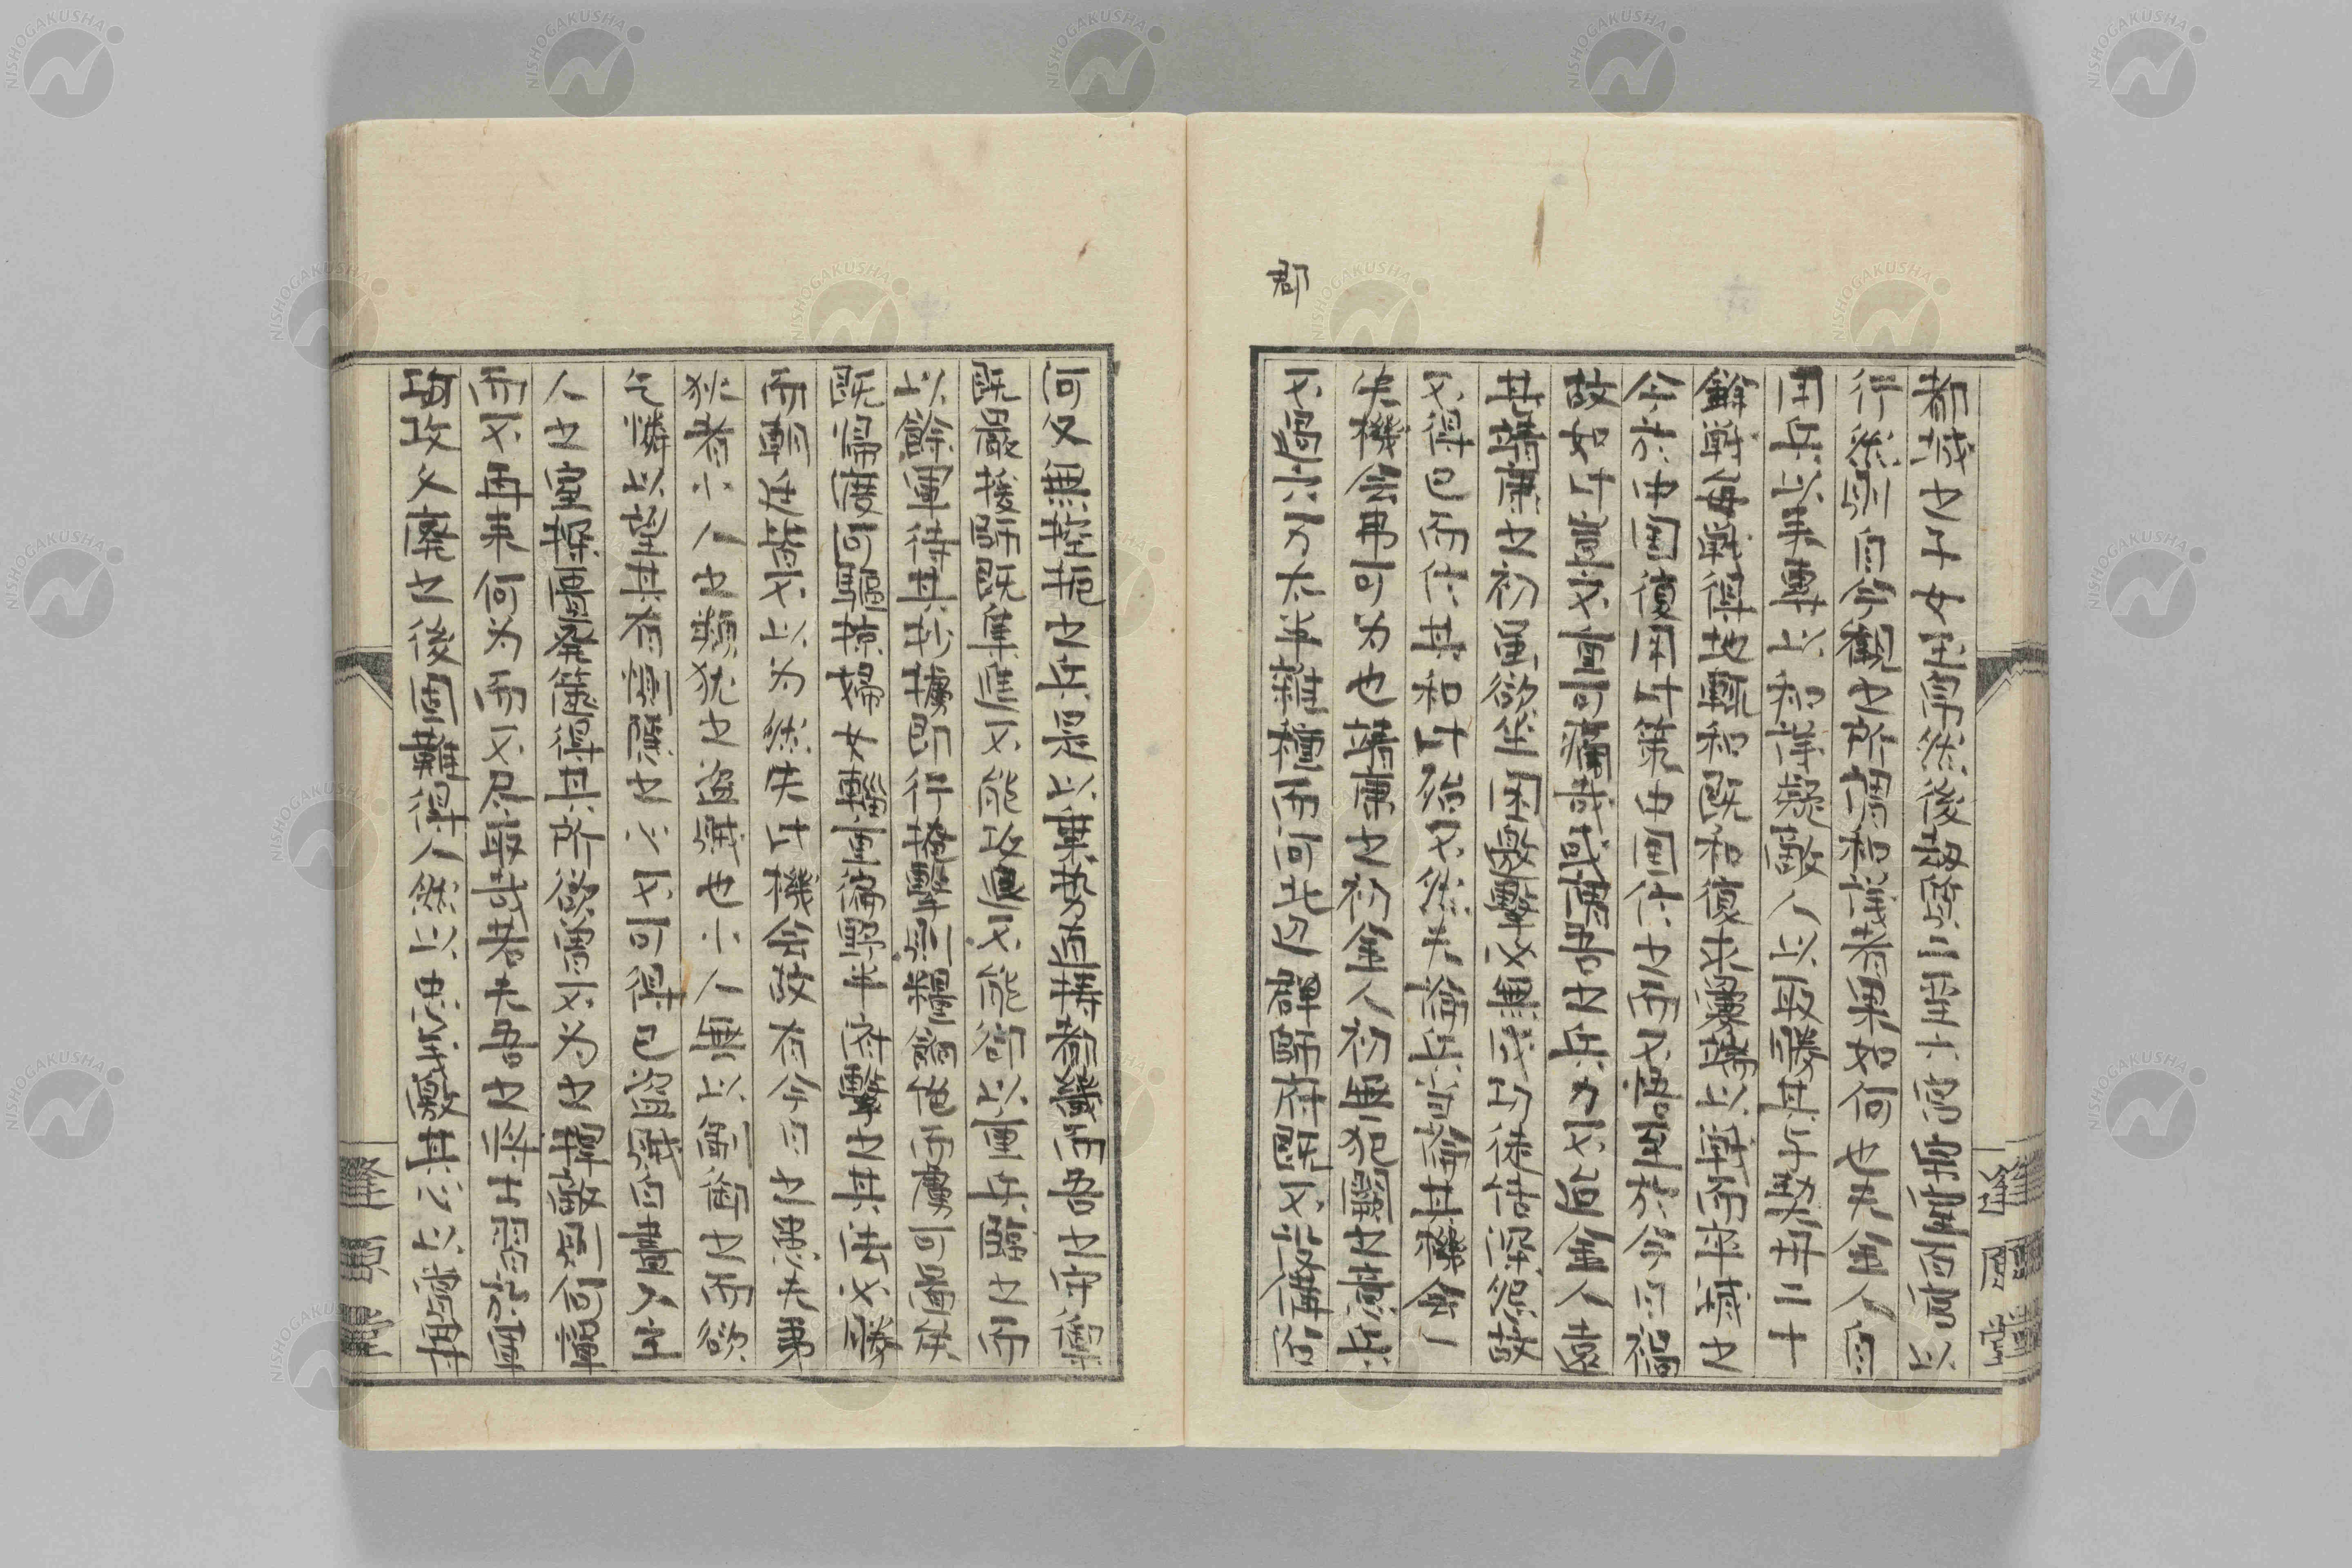 郡
都城之子女玉帛然後劫質二聖六宮宗室而高以
行然則自今觀之所謂和議者果如何也夫金人自
用兵以來專以和議疑敵人以取勝其于契丹二十
餘戦每戦得地輒和既和復求釁端以戦而卒滅之
今於中国復用此策中国信之而不悟至於今日禍
故如此豈不重可痛哉或謂吾之兵力不治金人遠
其靖康之初虽欲坐困邀擊必無成功徒結深怨故
不得已而信其和此殆不然夫論兵当論其機会一
失機会弗可为也靖康之初金人初無犯闕之意兵
不過六万太半雜種而河北郡縣府既不設備而
河又無控扼之兵是以乗势直擣都畿而吾之守禦
既嚴援師既集進不能攻退不能卻以重兵臨之而
以餘軍待其抄擄即行掩擊則糧餉也而虜可擒矣
既帰渡河驅掠婦女輜重徧野半府擊之其法必勝
而朝廷皆不以为然失此機会故有今日之患夫夷
狄者小人之類犹之盗賊也小人無以制御之而欲
乞憐以望其有惻隠之心不可得已盗賊白晝入主
人之室操戈發篋得其所欲曾不为之捍敵則何憚
而不再来何为而不尽取哉若夫吾之将士習於軍
攻又廃之後固難得人然以忠義激其心以賞罰